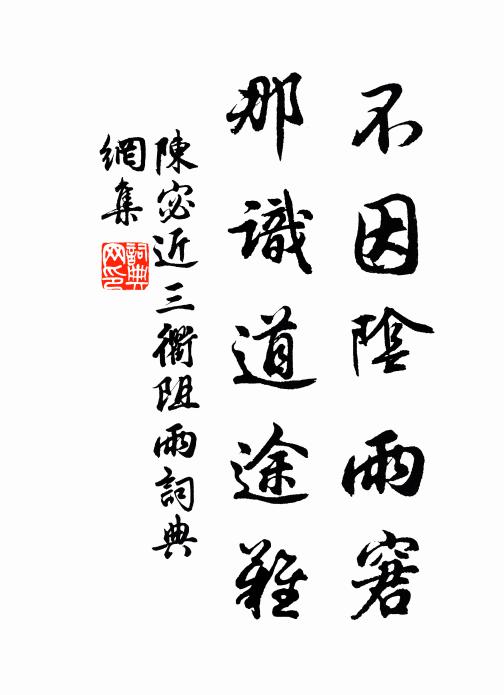 不因陰雨窘
那識道途難
陳宓近三衢阻雨詞典
網集
詞典
网印